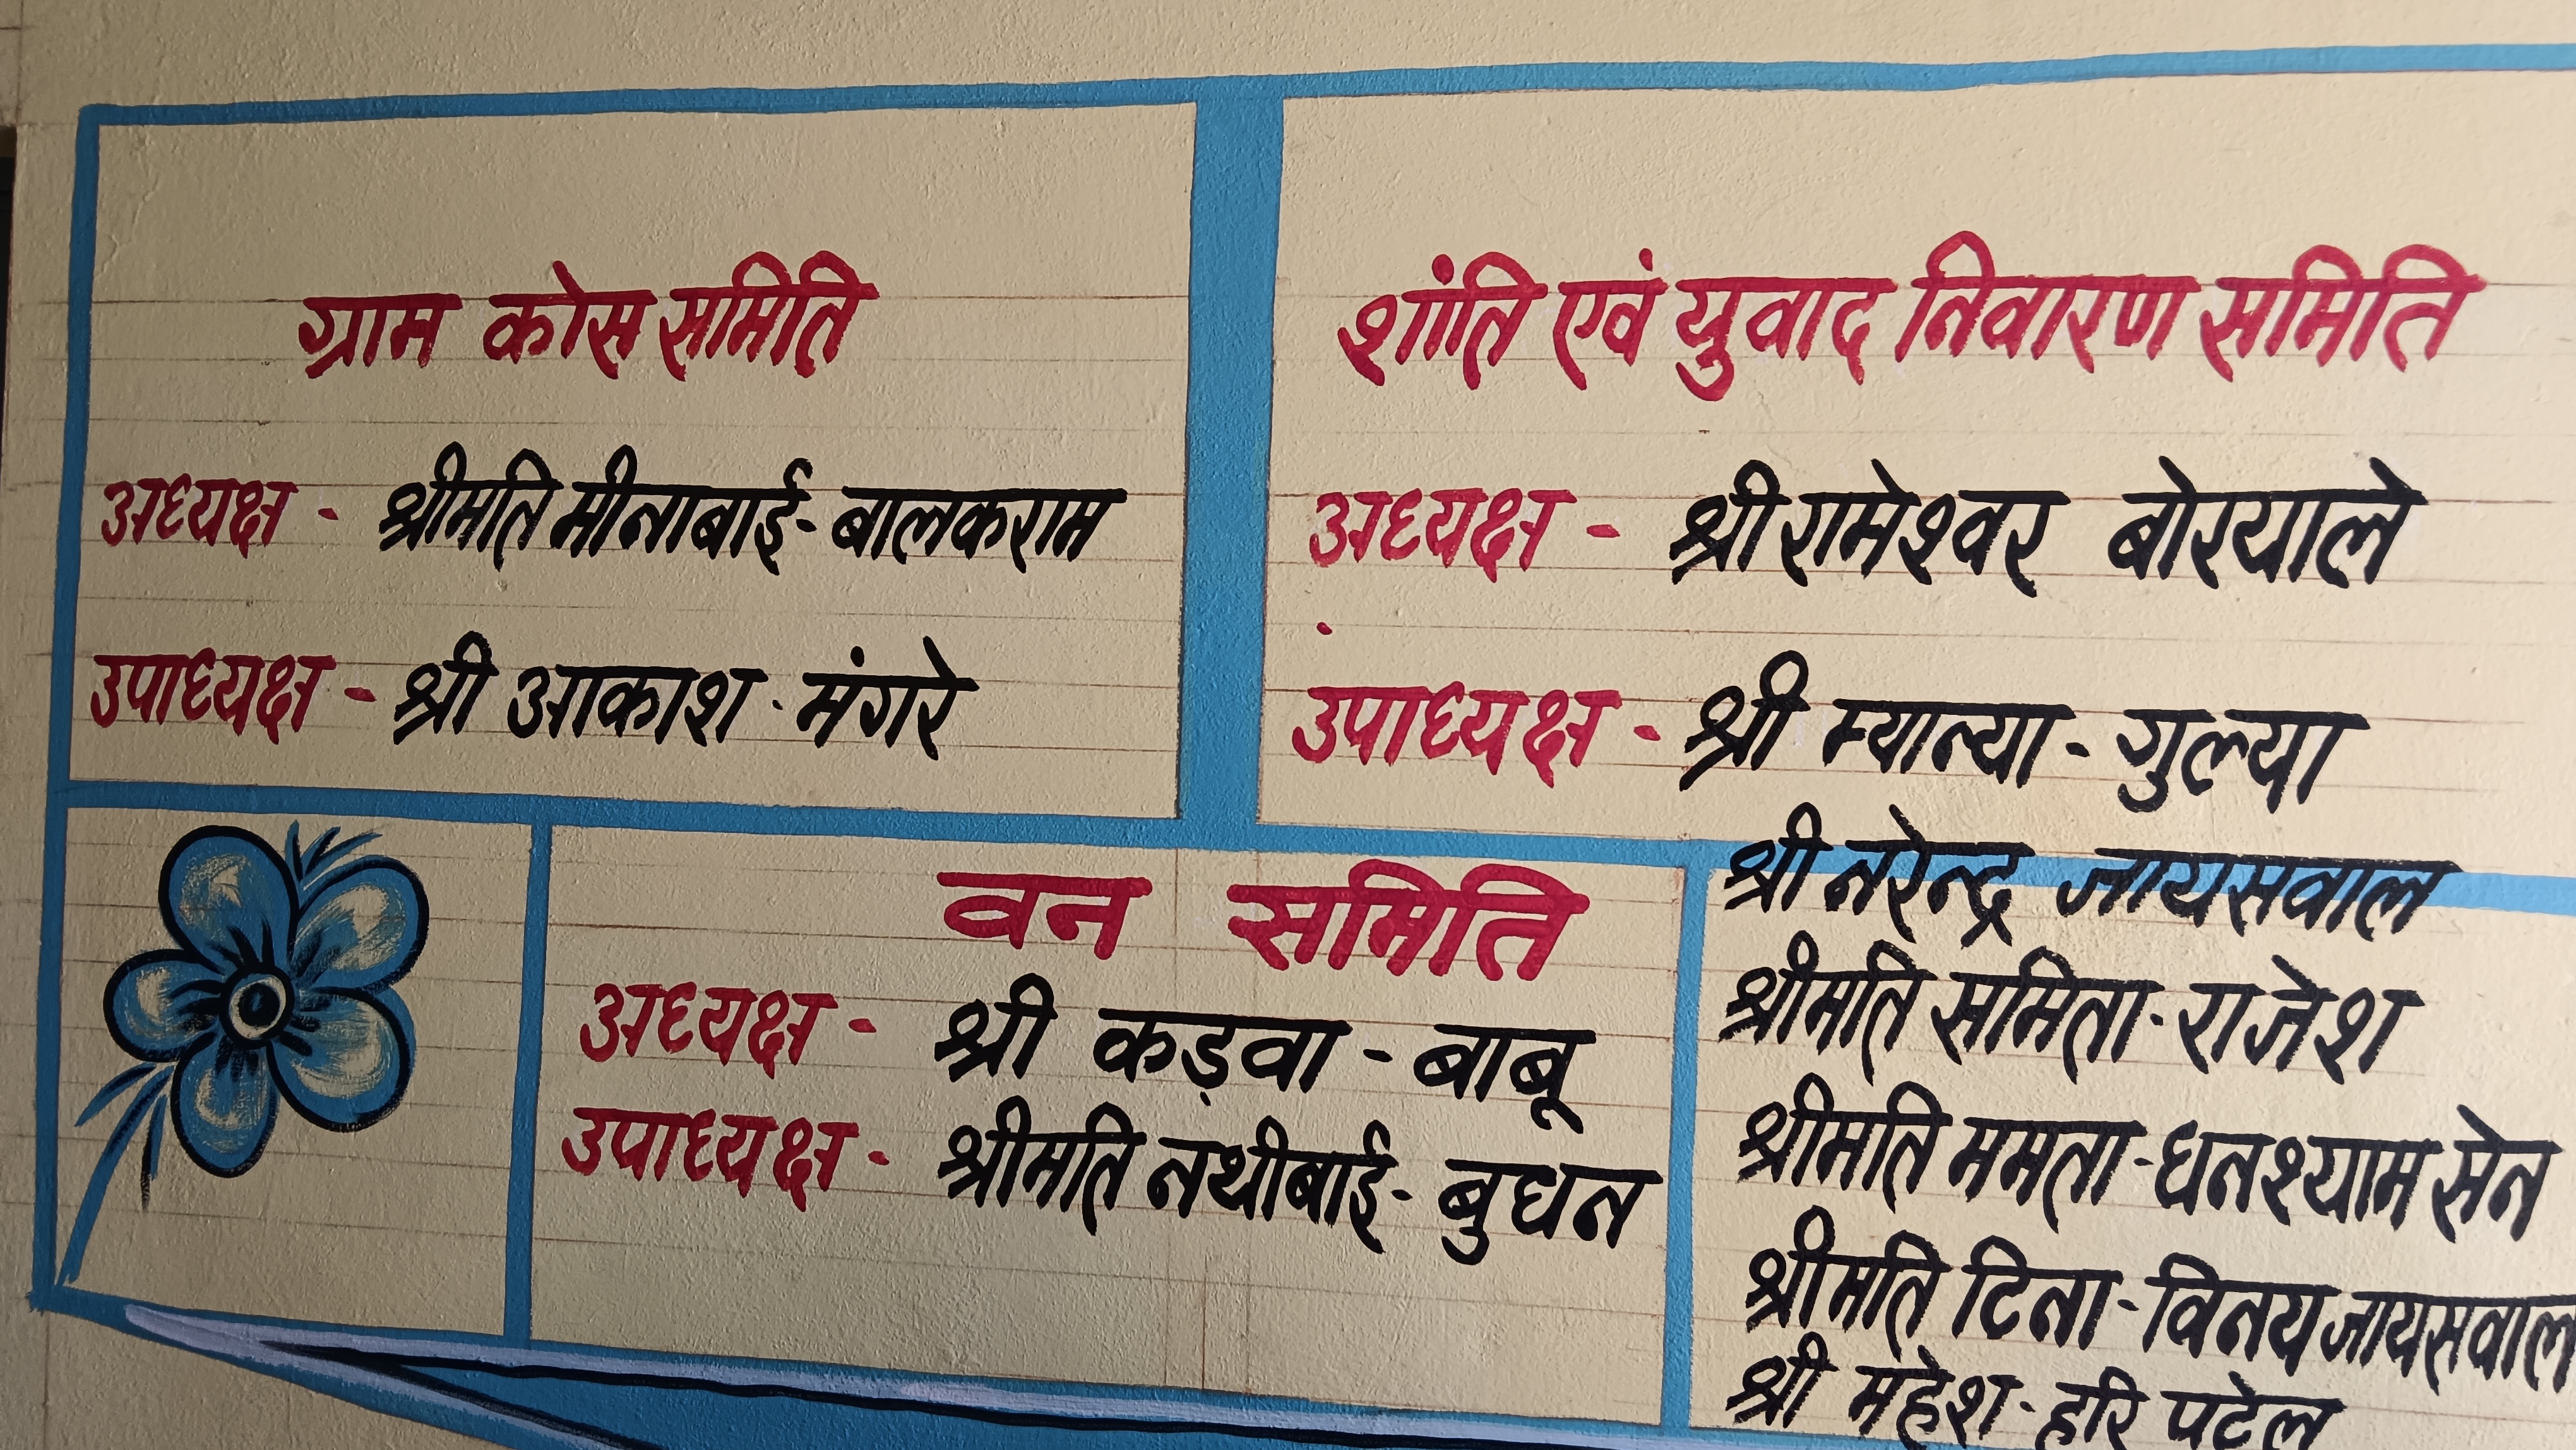 ग्राम कोस समिति
अध्यक्ष - श्रीमति मीनाबाई - बालकराम
उपाध्यक्ष - श्री आकाश - मंगरे
शांति एवं युवाद निवारण समिति
अध्यक्ष - श्री रामेश्वर बोरयाले
उपाध्यक्ष - श्री म्यान्या - गुल्या
वन समिति
अध्यक्ष - श्री कड़वा - बाबू
उपाध्यक्ष - श्रीमति नथीबाई - बुधन
श्री नरेन्द्र जायसवाल
श्रीमति समिता - राजेश
श्रीमति ममता - घनश्याम सेन
श्रीमति टिना - विनय जायसवाल
श्री महेश - हरि पटेल